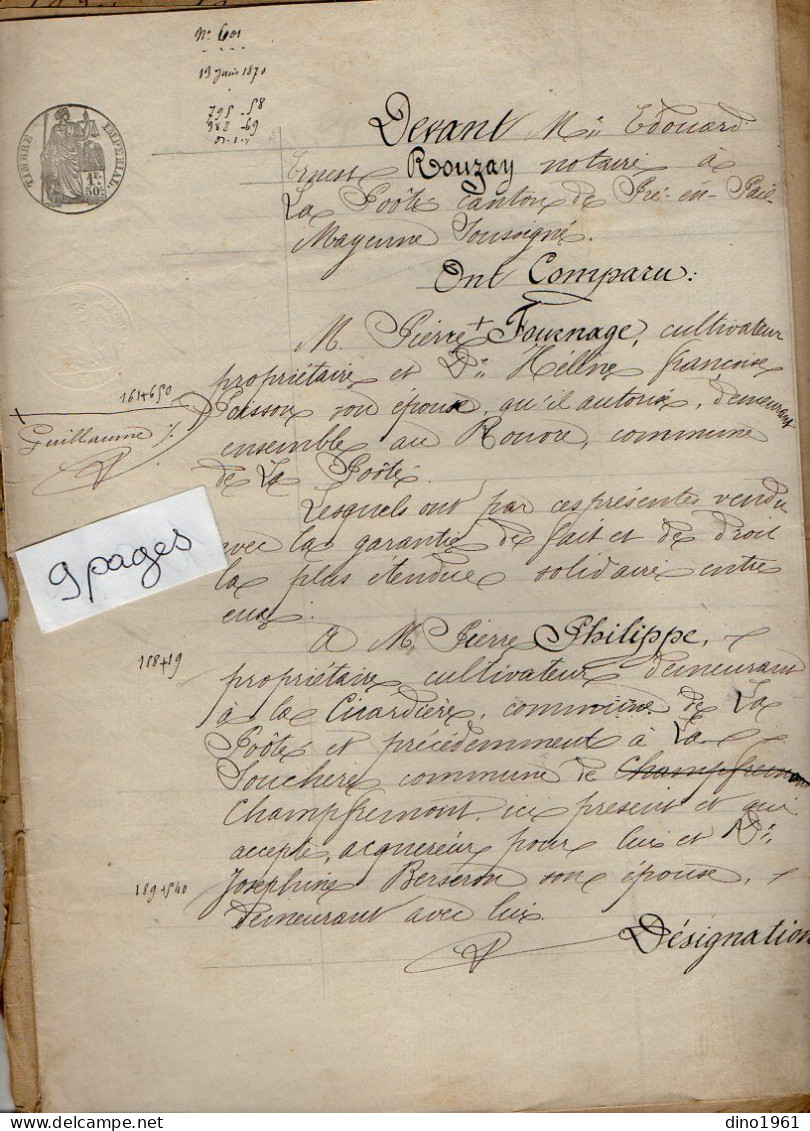 N° 601
19 Juin 1870
795 - 58
982 - 69
TIMBRE IMPERIAL
1F. 50c.
Devant Me Edouard
Ernest Rouzay notaire à
La Poôté Canton de Pré-en-Pail
Mayenne Soussigné.
Ont Comparu:
M. Pierre + Fournage, cultivateur
propriétaire et De Hélène françoise
161+650
Poisson son épouse, qu'il autorise, demeurant
Guillaume
ensemble au Rouvre, commune
de La Poôté.
Lesquels ont par ces présentes vendu
avec la garantie de fait et de droit
9 pages
la plus étendue solidaire entre
eux:
A M. Pierre Philippe,
188+19
propriétaire cultivateur demeurant
à la Cicardière, commune de La
Poôté et précédemment à La
Soucherie commune de Champfremon
Champfremont, ici présent et qui
accepte, acquéreur pour lui et De
189+540
Josephine Berseron son épouse,
demeurant avec lui.
Désignation
dino1961